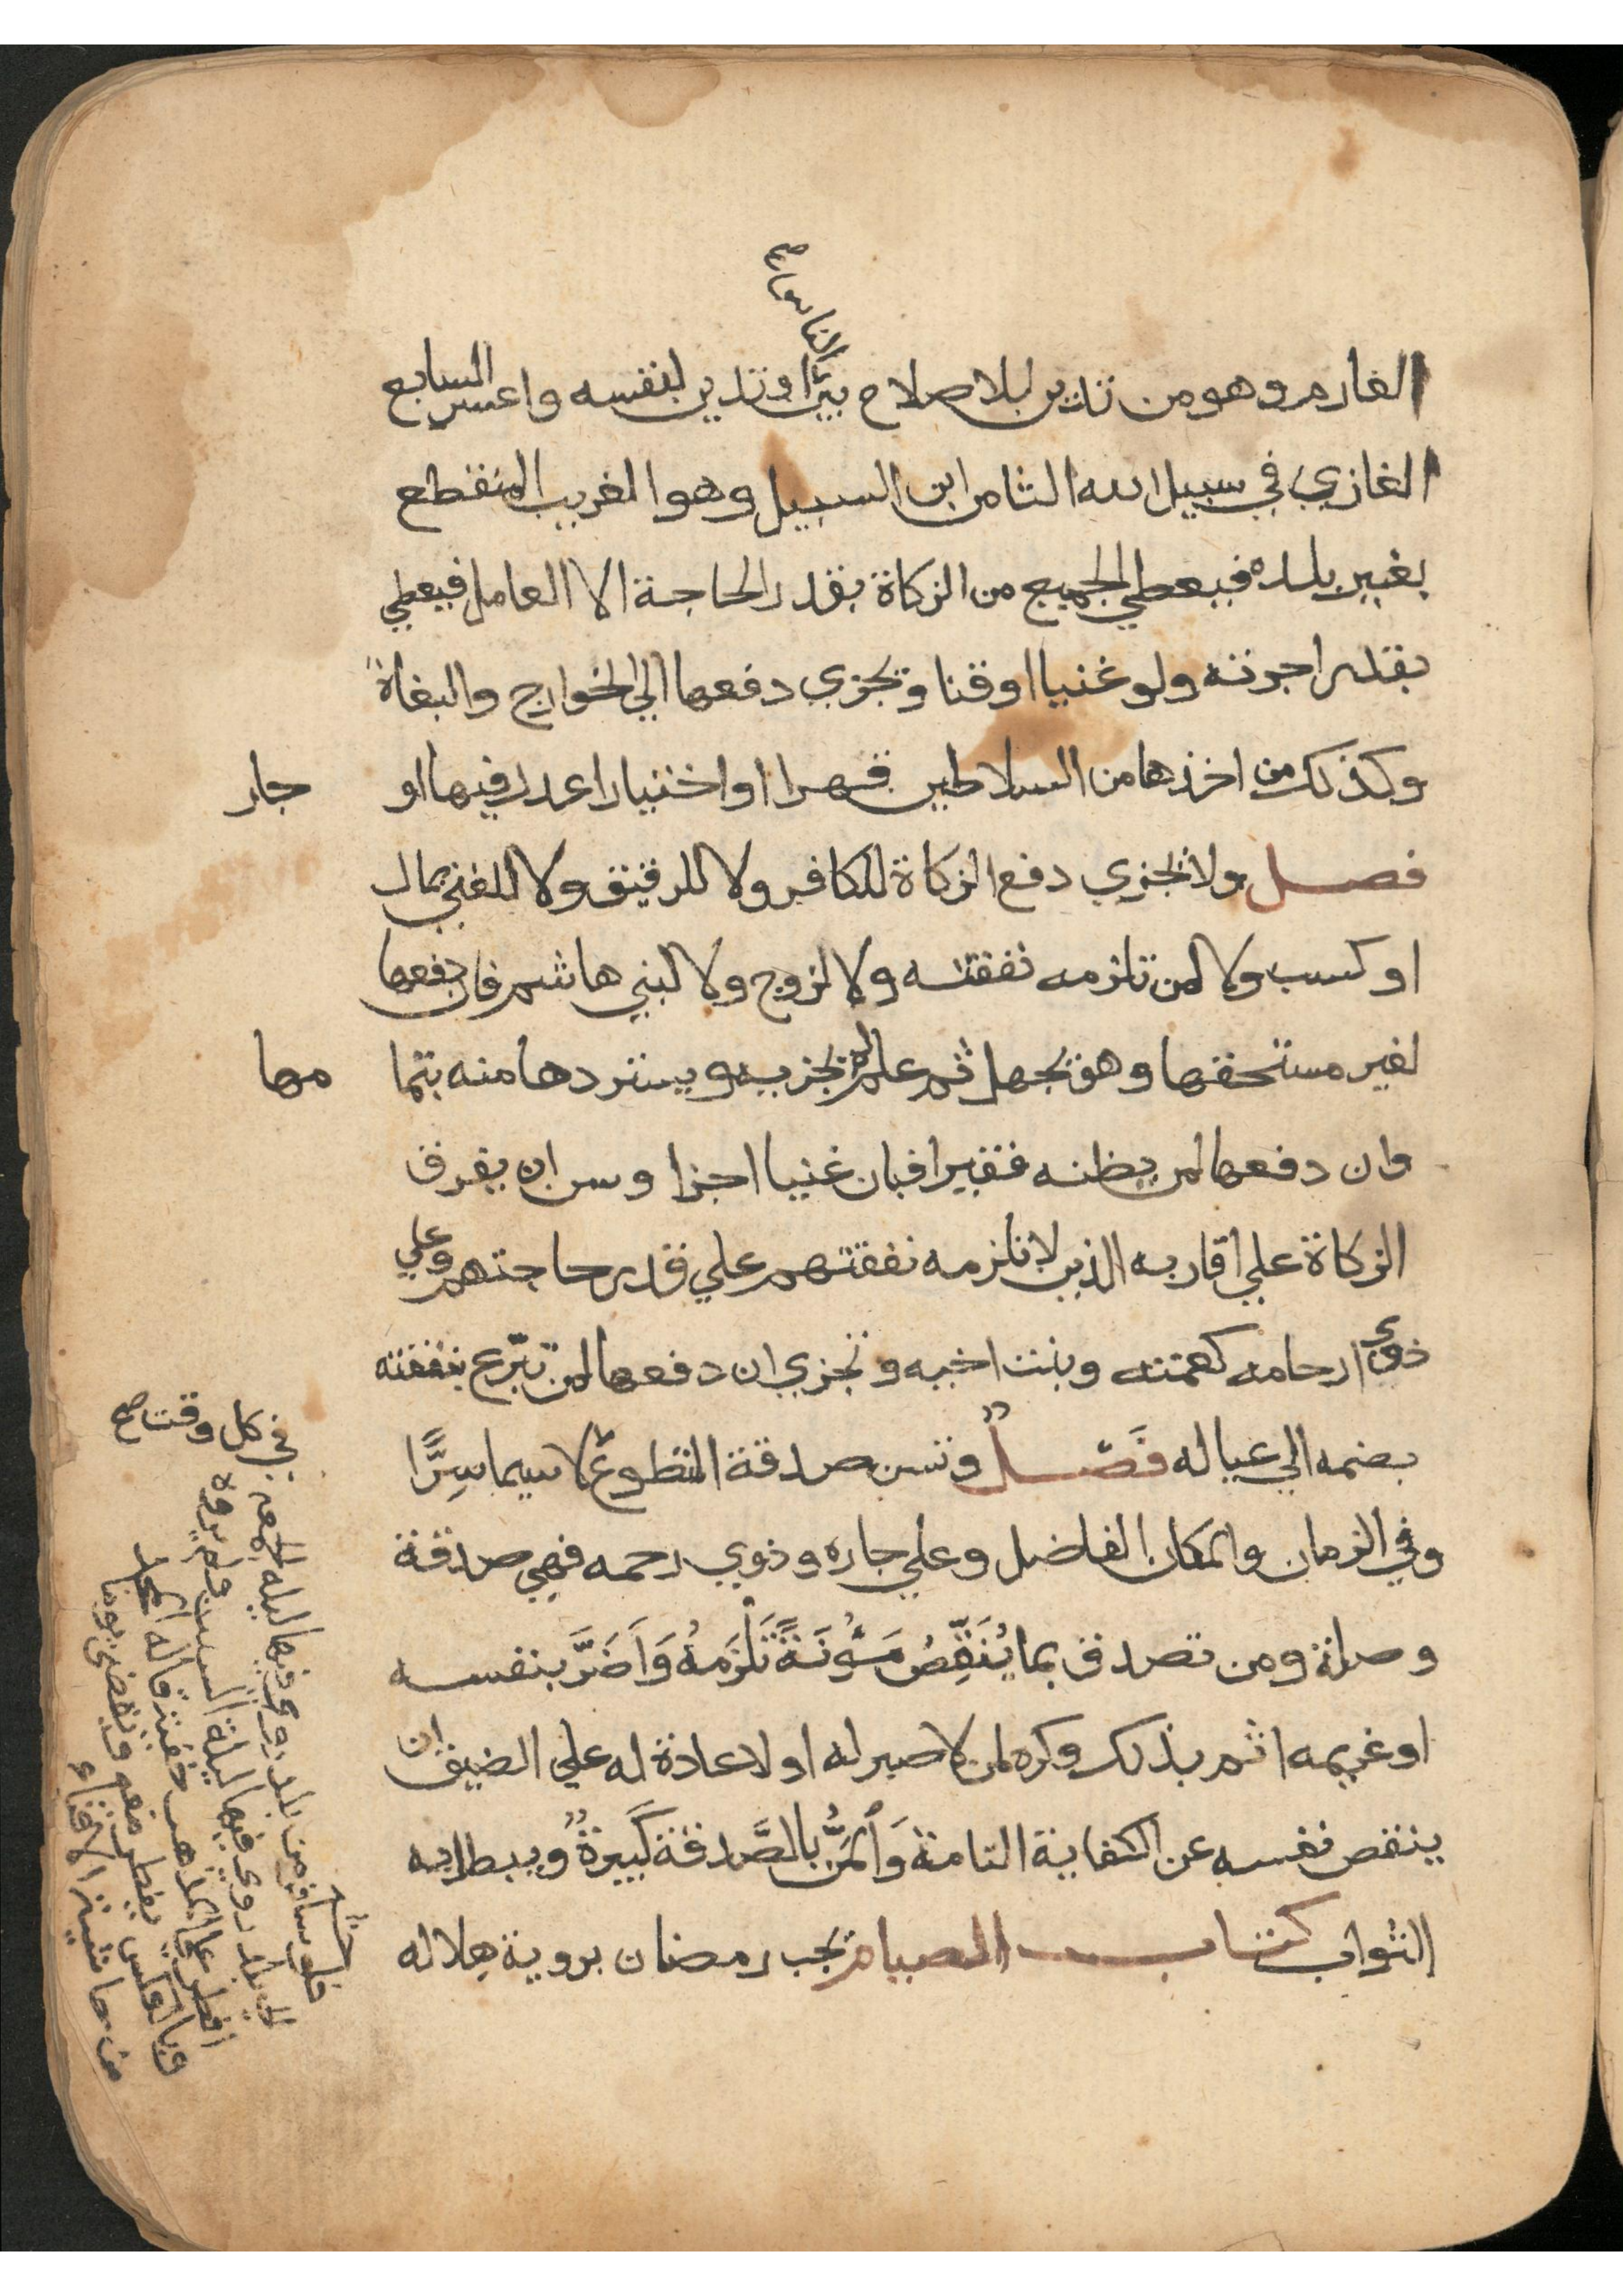 الناس صح
الغارم وهو من تدين للاصلاح بين او تدين لنفسه واعسر السابع
الغازي في سبيل الله الثامن ابن السبيل وهو الغريب المنقطع
بغير بلده فيعطي الجميع من الزكاة بقدر الحاجة الا العامل فيعطي
بقدر اجرته ولو غنيا او قنا وتجزي دفعها الي الخوارج والبغاة
وكذلك من اخذها من السلاطين قهرا او اختيارا عدل فيها او
جار
فصل ولا تجزي دفع الزكاة للكافر ولا للرقيق ولا للغني بمال
او كسب ولا لمن تلزمه نفقته ولا لزوج ولا لبني هاشم فان دفعها
لغير مستحقها وهو يجهل ثم علم لم تجزيه ويستردها منه بنما
مها
وان دفعها لمن يظنه فقيرا فبان غنيا اجزا وسن ان يفرق
الزكاة علي اقاربه الذين لا تلزمه نفقتهم علي قدر حاجتهم وعلي
ذوي ارحامه كعمته وبنت اخيه وتجزي ان دفعها لمن تبرع بنفقته
بضمه الي عياله فصل وتسن صدقة التطوع لا سيما سِرًّا
وفي الزمان والمكان الفاضل وعلي جاره وذوي رحمه فهي صدقة
وصلة ومن تصدق بما يُنَقِّصُ مَئُونَةً تَلْزَمُهُ وَأَضَرَّ بنفسه
او غريمه اثم بذلك وكره لمن لا صبر له او لا عادة له علي الضيق ان
ينقص نفسه عن الكفاية التامة وَالْمَنُّ بالصَّدقة كَبِيرَةٌ ويبطل به
الثواب كتاب الصيام تجب رمضان بروية هلاله
في كل وقت صح
فلو سافر من بلد روي فيها ليلة الجمعة
الي بلد روي فيها ليلة السبت ولم يروه
افطر علي المذهب
وبالعكس يفطر معهم ويقضي يوما
من حاشية الاقناع